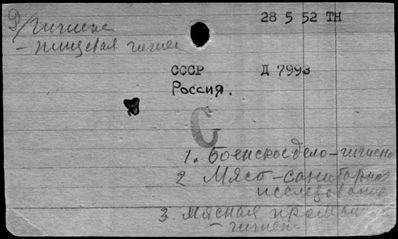 Гигиена
28 5 52 ТН
- пищевая гигиен
СССР
Д 7993
Россия.
С
1. Боенское дело-гигиена
2 Мясо-санитарное
исследование
3 Мясная промыш
- гигиен